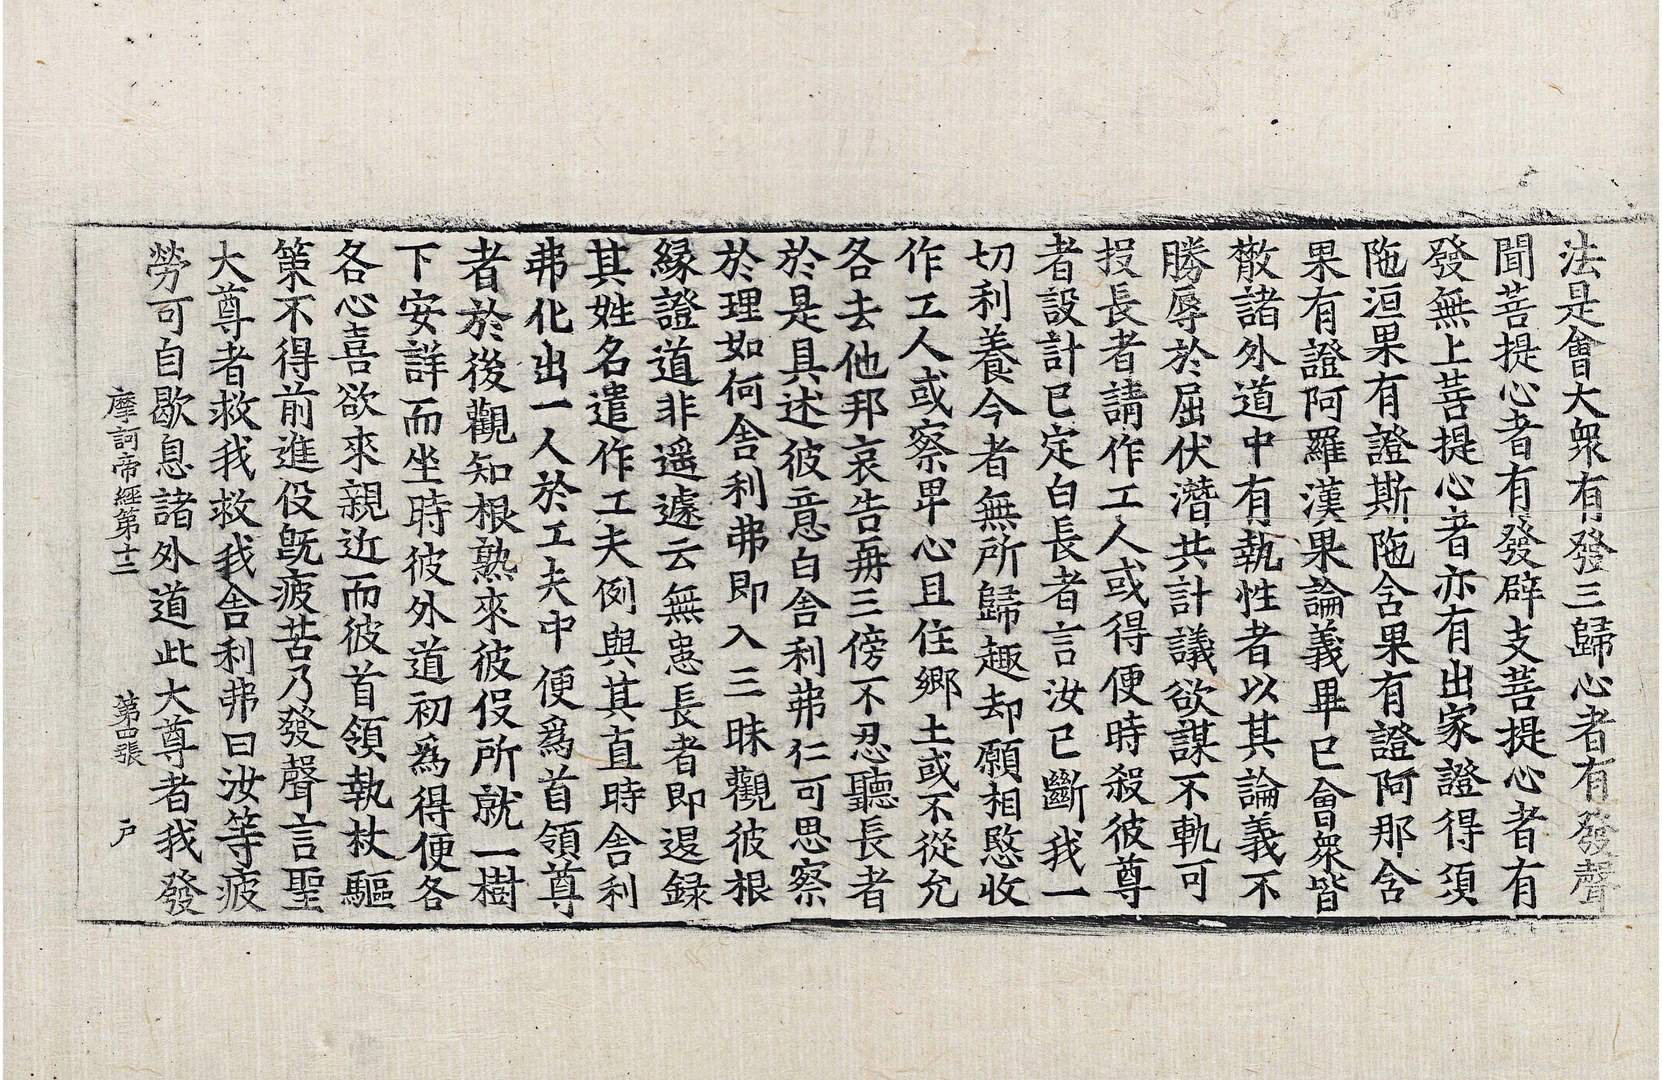 法是會大衆有發三歸心者有發聲
聞菩提心者有發辟支菩提心者有
發無上菩提心者亦有出家證得須
陁洹果有證斯陁含果有證阿那含
果有證阿羅漢果論義畢已會衆皆
散諸外道中有執性者以其論義不
勝辱於屈伏潛共計議欲謀不軌可
投長者請作工人或得便時殺彼尊
者設計已定白長者言汝已斷我一
切利養今者無所歸趣却願相愍收
作工人或察卑心且住鄉土或不從允
各去他邦哀告再三傍不忍聽長者
於是具述彼意白舍利弗仁可思察
於理如何舍利弗即入三昧觀彼根
緣證道非遥遽云無患長者即退録
其姓名遣作工夫例與其直時舍利
弗化出一人於工夫中便爲首領尊
者於後觀知根熟來彼役所就一樹
下安詳而坐時彼外道初爲得便各
各心喜欲來親近而彼首領執杖驅
策不得前進役既疲苦乃發聲言聖
大尊者救我救我舍利弗曰汝等疲
勞可自歇息諸外道此大尊者我發
摩訶帝經第十二 第四張 戸